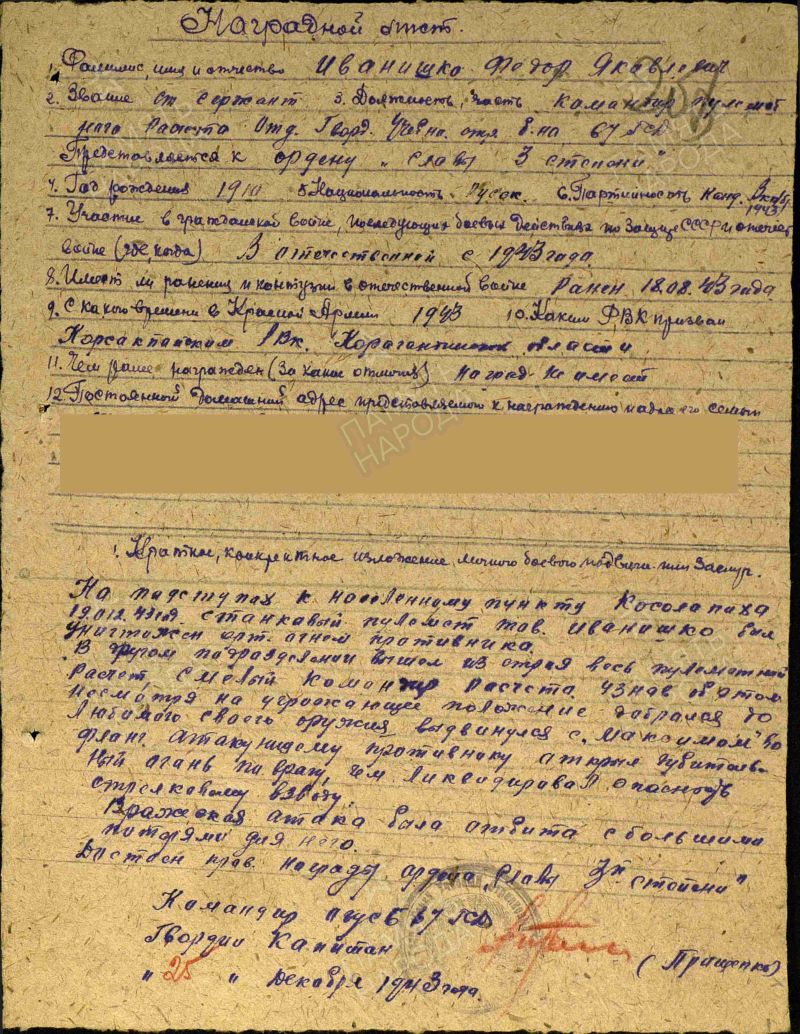 Наградной лист.
1. Фамилис, имя и отчество Иванишко Федор Яковлевич
2. Звание ст сержант 3. Должность, часть командир пулемет
ного расчета Отд. Гвард. Учебн. стр б-на 67 ГСД
Представляется к ордену „Славы 3 степени"
4. Год рождения 1910 5 Национальность Русск. 6. Партийность Канд. Вкп/б/ 1943
7. Участие в гражданской войне, последующих боевых действиях по защите СССР и отечест
войне (где, когда) В отечественной с 1943 года
8. Имеет ли ранения и контузии в отечественной войне Ранен 18.08.43 года
9. С какого времени в Красной Армии 1943 10. Каким РВК призван
Карсакпайским Рвк. области
11. Чем ранее награжден (За какие отличия) наград не имеет
12. Постоянной домашний адрес представляемого к награждению и адрес его семьи
1. Краткое, конкретное изложение личного боевого подвига или заслуг.
На подступах к населенному пункту Косолапиха
19.012.43 год. станковый пулемет тов. Иванишко был
уничтожен арт. огнем противника.
В другом подразделении вышел из строя весь пулеметный
расчет смелый командир расчета узнав об этом
несмотря на угрожающее положение добрался до
любимого своего оружия выдвинулся с „Максимом" во
фланг атакующему противнику открыл губитель-
ный огонь по врагу, чем ликвидировал опасность
стрелковому взводу.
Вражеская атака была отбита с большими
потерями для него.
Достоин прав. награды ордена „Славы 3й степени"
Командир оусб 67 ГСД
Гвардии Капитан
(Пращенко)
„25" Декабря 1943 года.
ПАМЯТЬ НАРОДА